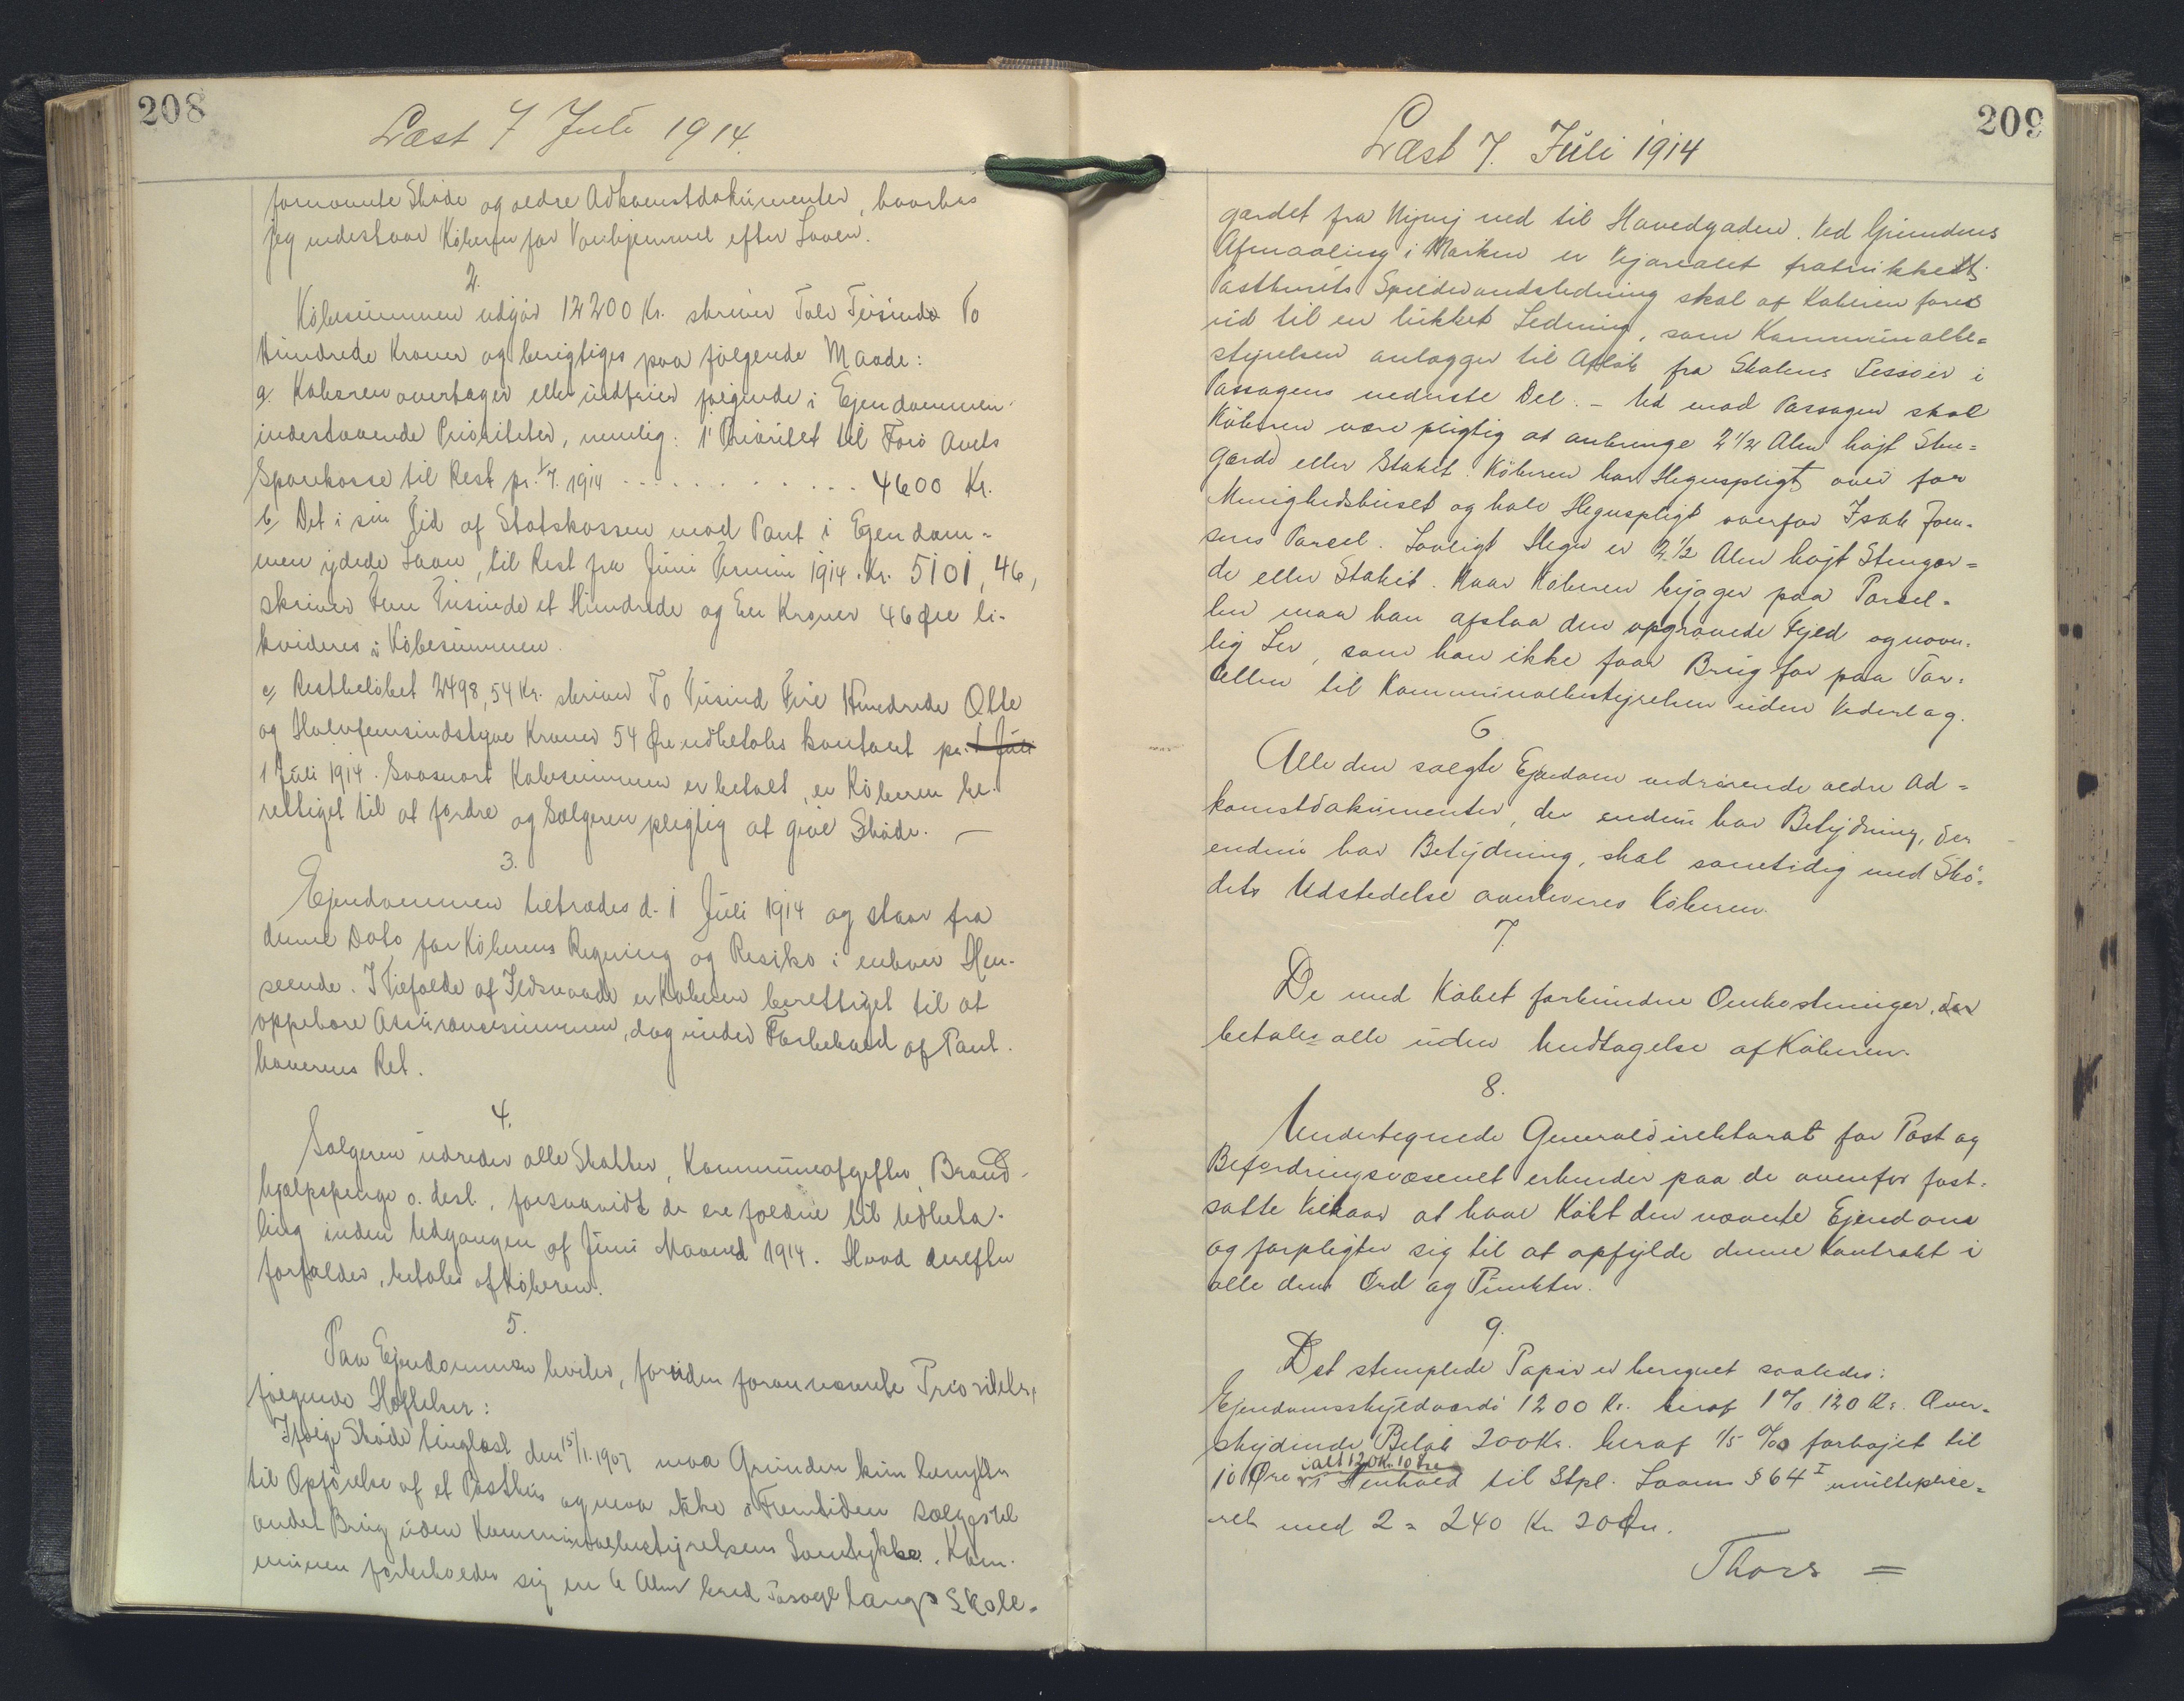 208
Læst 7 Juli 1914.
fornævnte Skøde og ældre Adkomstdokumenter, hvorhos
jeg indestaar Køberen for Vanhjemmel efter Loven.
2.
Købesummen udgør 12200 Kr. skriver Tolv Tusinde To
Hundrede Kroner og berigtiges paa følgende Maade:
a. Køberen overtager eller indfrier følgende i Ejendommen
indestaaende Prioriteter, nemlig: 1' Prioritet til Færö Amts
Sparekasse til Rest pr. 1/7. 1914 . . . . . . . . . . 4600 Kr.
b, Det i sin Tid af Statskassen mod Pant i Ejendom=
men ydede Laan, til Rest fra Juni Termin 1914. Kr. 5101,46,
skriver Fem Tusinde et Hundrede og En Kroner 46 Øre li-
kvideres i Købesummen.
c, Restbeløbet 2498,54 Kr. skriver To Tusind Fire Hundrede Otte
og Halvfemsindstyve Kroner 54 Øre udbetales kontant pr. 1 Juli
1 Juli 1914. Saasnart Købesummen er betalt, er Køberen be-
rettiget til at fordre og Sælgeren pligtig at give Skøde. —
3.
Ejendommen tiltrædes d. 1 Juli 1914 og staar fra
denne Dato for Køberens Regning og Resiko i enhver Hen-
seende. I Tilfælde af Ildsvaade er Køberen berettiget til at
oppebære Assurancesummen, dog under Forbehold af Pant-
haverens Ret.
4.
Sælgeren udreder alle Skatter, Kommuneafgifter, Brand-
hjælpspenge o. desl., forsaavidt de ere faldne til Udbeta-
ling inden Udgangen af Juni Maaned 1914. Hvad derefter
forfalder, betales af Køberen.
5.
Paa Ejendommen hviler, foruden forannævnte Prioriteter,
følgende Hæftelser:
Ifølge Skøde tinglæst den 15/1.1907 maa Grunden kun benyttes
til Opførelse af et Posthus og maa ikke i Fremtiden sælges til
andet Brug uden Kommunalbestyrelsens Samtykke. Kom-
munen forbeholder sig en 6 Alen bred Pasage langs Skole-
209
Læst 7. Juli 1914
gærdet fra Nyvej ned til Hovedgaden. Ved Grundens
Afmaaling i Marken er Vejarealet fratrukket.
Posthusets Spildevandsledning skal af Køberen føres
ud til en lukket Ledning, som Kommunalbe=
styrelsen anlægger til Afløb fra Skolens Pissoir i
Passagens nederste Del. – Ud mod Passagen skal
Køberen være pligtig at anbringe 2 1/2 Alen højt Sten=
gærde eller Stakit. Køberen har Hegnspligt over for
Menighedshuset og halv Hegnspligt overfor Isak Joen-
sens Parcel. Lovligt Hegn er 2 1/2 Alen højt Stengær=
de eller Stakit. Naar Køberen bygger paa Parcel-
len maa han afstaa den opgravede Fyld og navn-
lig Ler, som han ikke faar Brug for paa Par-
cellen til Kommunalbestyrelsen uden Vederlag.
6
Alle den solgte Ejendom vedrørende ældre Ad=
komstdokumenter, der endnu har Betydning, der
endnu har Betydning, skal samtidig med Skø-
dets Udstedelse overleveres Køberen.
7.
De med Købet forbundne Omkostninger, der
betales alle uden Undtagelse af Køberen.
8.
Undertegnede Generaldirektorat for Post og
Befordringsvæsenet erkender paa de ovenfor fast-
satte Vilkaar at have Købt den nævnte Ejendom
og forpligter sig til at opfylde denne Kontrakt i
alle dens Ord og Punkter.
9.
Det stemplede Papir er beregnet saaledes:
Ejendomsskyldværdi 1200 Kr. heraf 1% 120 Kr. Over-
skydende Beløb 200 Kr. heraf 1/5 % forhøjet til
ialt 120 Kr. 10 Øre
10 Øre i Henhold til Stpl. Lovens § 64 I multiplice=
ret med 2 = 240 Kr. 20 Øre.
Thors =